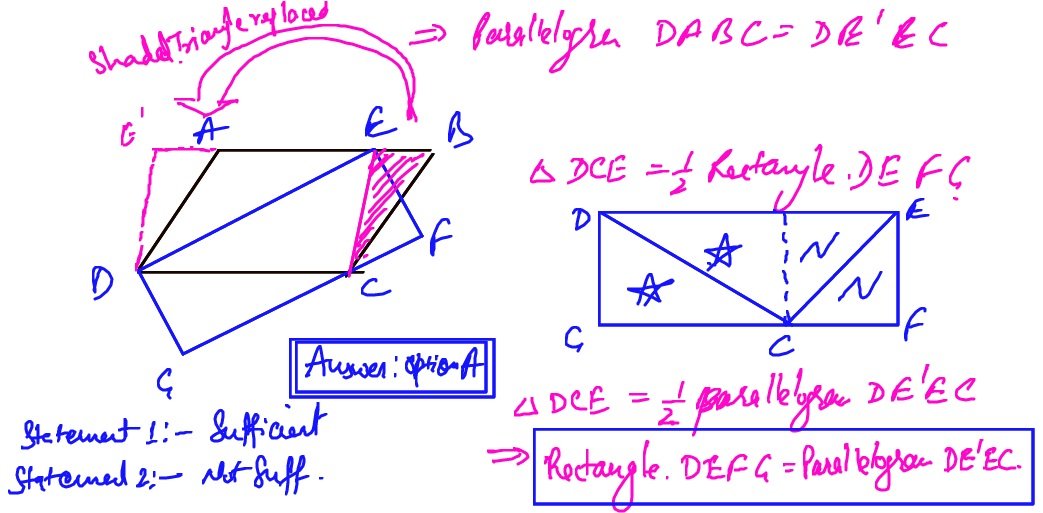 Shaded Triangle replaced
⇒ Parallelogram DABC = DE'EC
E' A E B
△ DCE = 1/2 Rectangle. DEFG
D E
F
D C
G F
G C
Answer: option A
△ DCE = 1/2 parallelogram DE'EC
Statement 1:- Sufficient
⇒ Rectangle. DEFG = Parallelogram DE'EC.
Statement 2:- Not Suff.